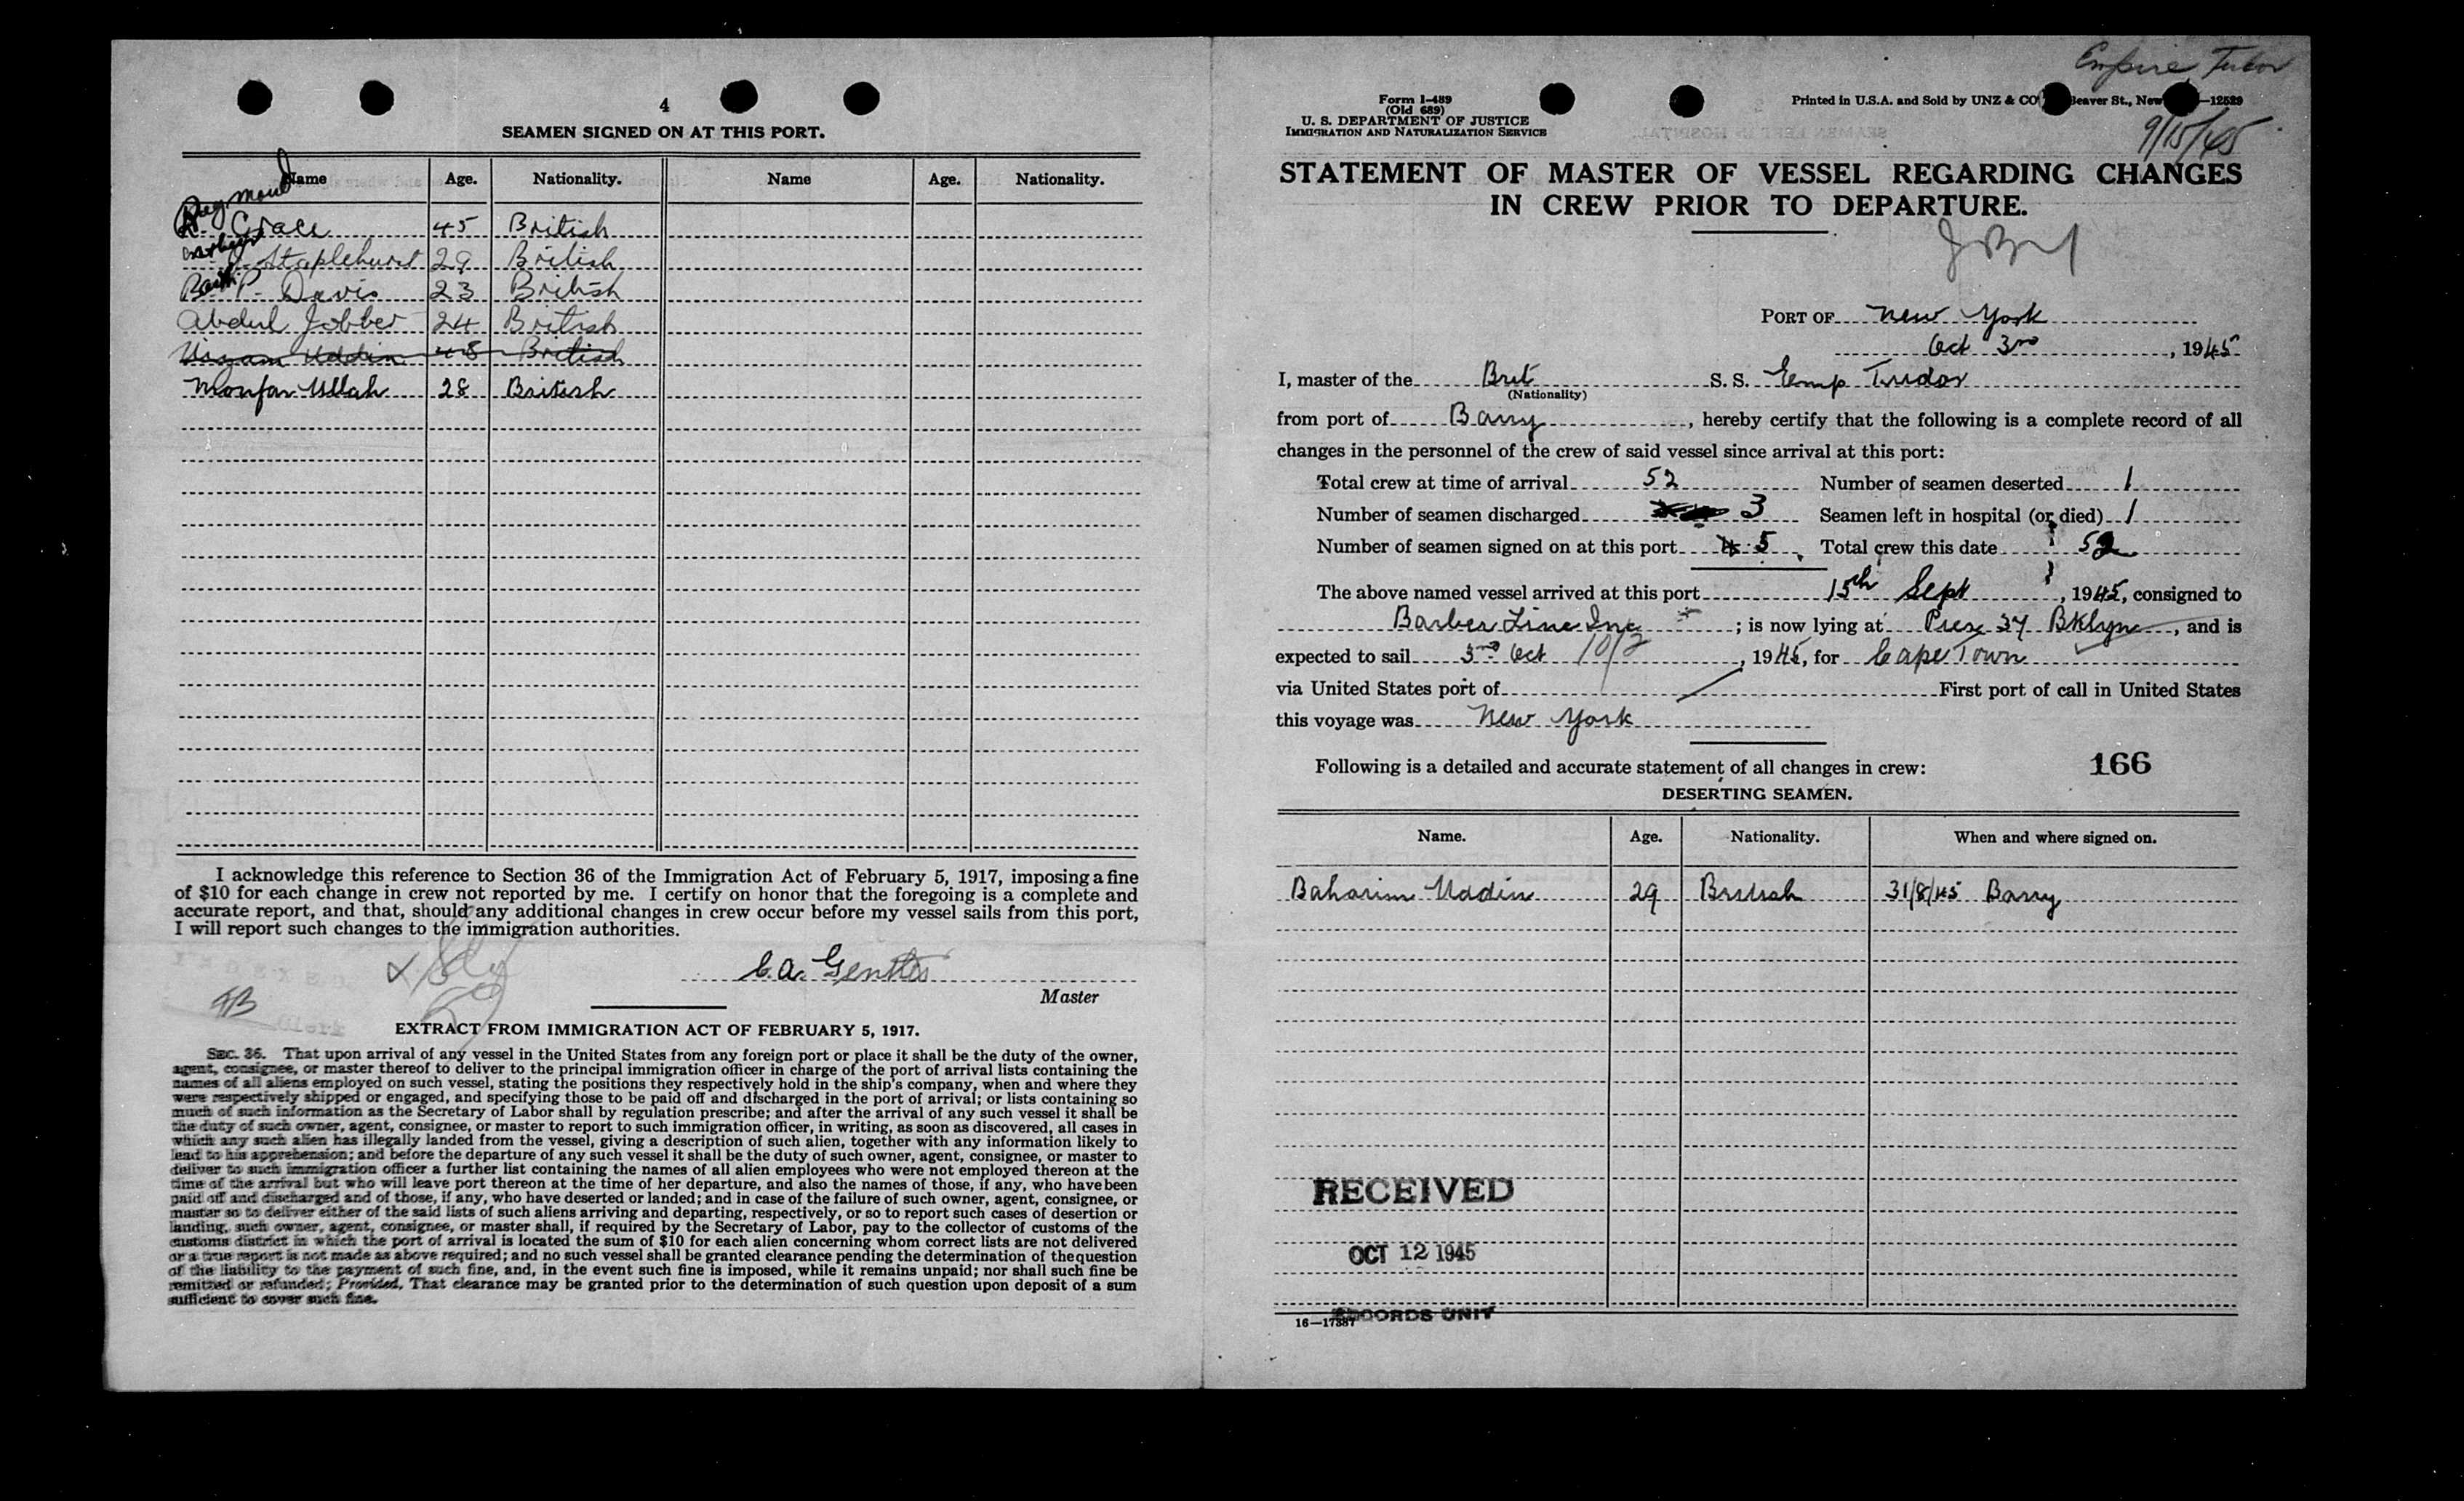 4
SEAMEN SIGNED ON AT THIS PORT.
Name Age. Nationality. Name Age. Nationality.
Raymond
Grace 45 British
Staplehurst 29 British
P. Davis 23 British
Abdul Jobber 24 British
Uddin 48 British
Monfor Ullah 28 British
I acknowledge this reference to Section 36 of the Immigration Act of February 5, 1917, imposing a fine
of $10 for each change in crew not reported by me. I certify on honor that the foregoing is a complete and
accurate report, and that, should any additional changes in crew occur before my vessel sails from this port,
I will report such changes to the immigration authorities.
C.A.
Master
EXTRACT FROM IMMIGRATION ACT OF FEBRUARY 5, 1917.
SEC. 36. That upon arrival of any vessel in the United States from any foreign port or place it shall be the duty of the owner,
agent, consignee, or master thereof to deliver to the principal immigration officer in charge of the port of arrival lists containing the
names of all aliens employed on such vessel, stating the positions they respectively hold in the ship's company, when and where they
were respectively shipped or engaged, and specifying those to be paid off and discharged in the port of arrival; or lists containing so
much of such information as the Secretary of Labor shall by regulation prescribe; and after the arrival of any such vessel it shall be
the duty of such owner, agent, consignee, or master to report to such immigration officer, in writing, as soon as discovered, all cases in
which any such alien has illegally landed from the vessel, giving a description of such alien, together with any information likely to
lead to his apprehension; and before the departure of any such vessel it shall be the duty of such owner, agent, consignee, or master to
deliver to such immigration officer a further list containing the names of all alien employees who were not employed thereon at the
time of the arrival but who will leave port thereon at the time of her departure, and also the names of those, if any, who have been
paid off and discharged and of those, if any, who have deserted or landed; and in case of the failure of such owner, agent, consignee, or
master so to deliver either of the said lists of such aliens arriving and departing, respectively, or so to report such cases of desertion or
landing, such owner, agent, consignee, or master shall, if required by the Secretary of Labor, pay to the collector of customs of the
customs district in which the port of arrival is located the sum of $10 for each alien concerning whom correct lists are not delivered
or a true report is not made as above required; and no such vessel shall be granted clearance pending the determination of the question
of the liability to the payment of such fine, and, in the event such fine is imposed, while it remains unpaid; nor shall such fine be
remitted or refunded; Provided, That clearance may be granted prior to the determination of such question upon deposit of a sum
sufficient to cover such fine.
Empire Tudor
Form I-489
(Old 689)
U. S. DEPARTMENT OF JUSTICE
IMMIGRATION AND NATURALIZATION SERVICE
Printed in U.S.A. and Sold by UNZ & CO Beaver St., New —12529
9/15/45
STATEMENT OF MASTER OF VESSEL REGARDING CHANGES
IN CREW PRIOR TO DEPARTURE.
PORT OF New York
Oct 3rd, 1945
I, master of the Brit S. S. Emp Tudor
(Nationality)
from port of Barry, hereby certify that the following is a complete record of all
changes in the personnel of the crew of said vessel since arrival at this port:
Total crew at time of arrival 52 Number of seamen deserted 1
Number of seamen discharged 3 Seamen left in hospital (or died) 1
Number of seamen signed on at this port 5 Total crew this date 52
The above named vessel arrived at this port 15th Sept, 1945, consigned to
Barber Line Inc; is now lying at Pier 37 Bklyn, and is
expected to sail 3rd Oct 10/2, 1945, for Cape Town
via United States port of First port of call in United States
this voyage was New York
Following is a detailed and accurate statement of all changes in crew: 166
DESERTING SEAMEN.
Name. Age. Nationality. When and where signed on.
Baharim Uddin 29 British 31/8/45 Barry
RECEIVED
OCT 12 1945
RECORDS UNIT
16—17387